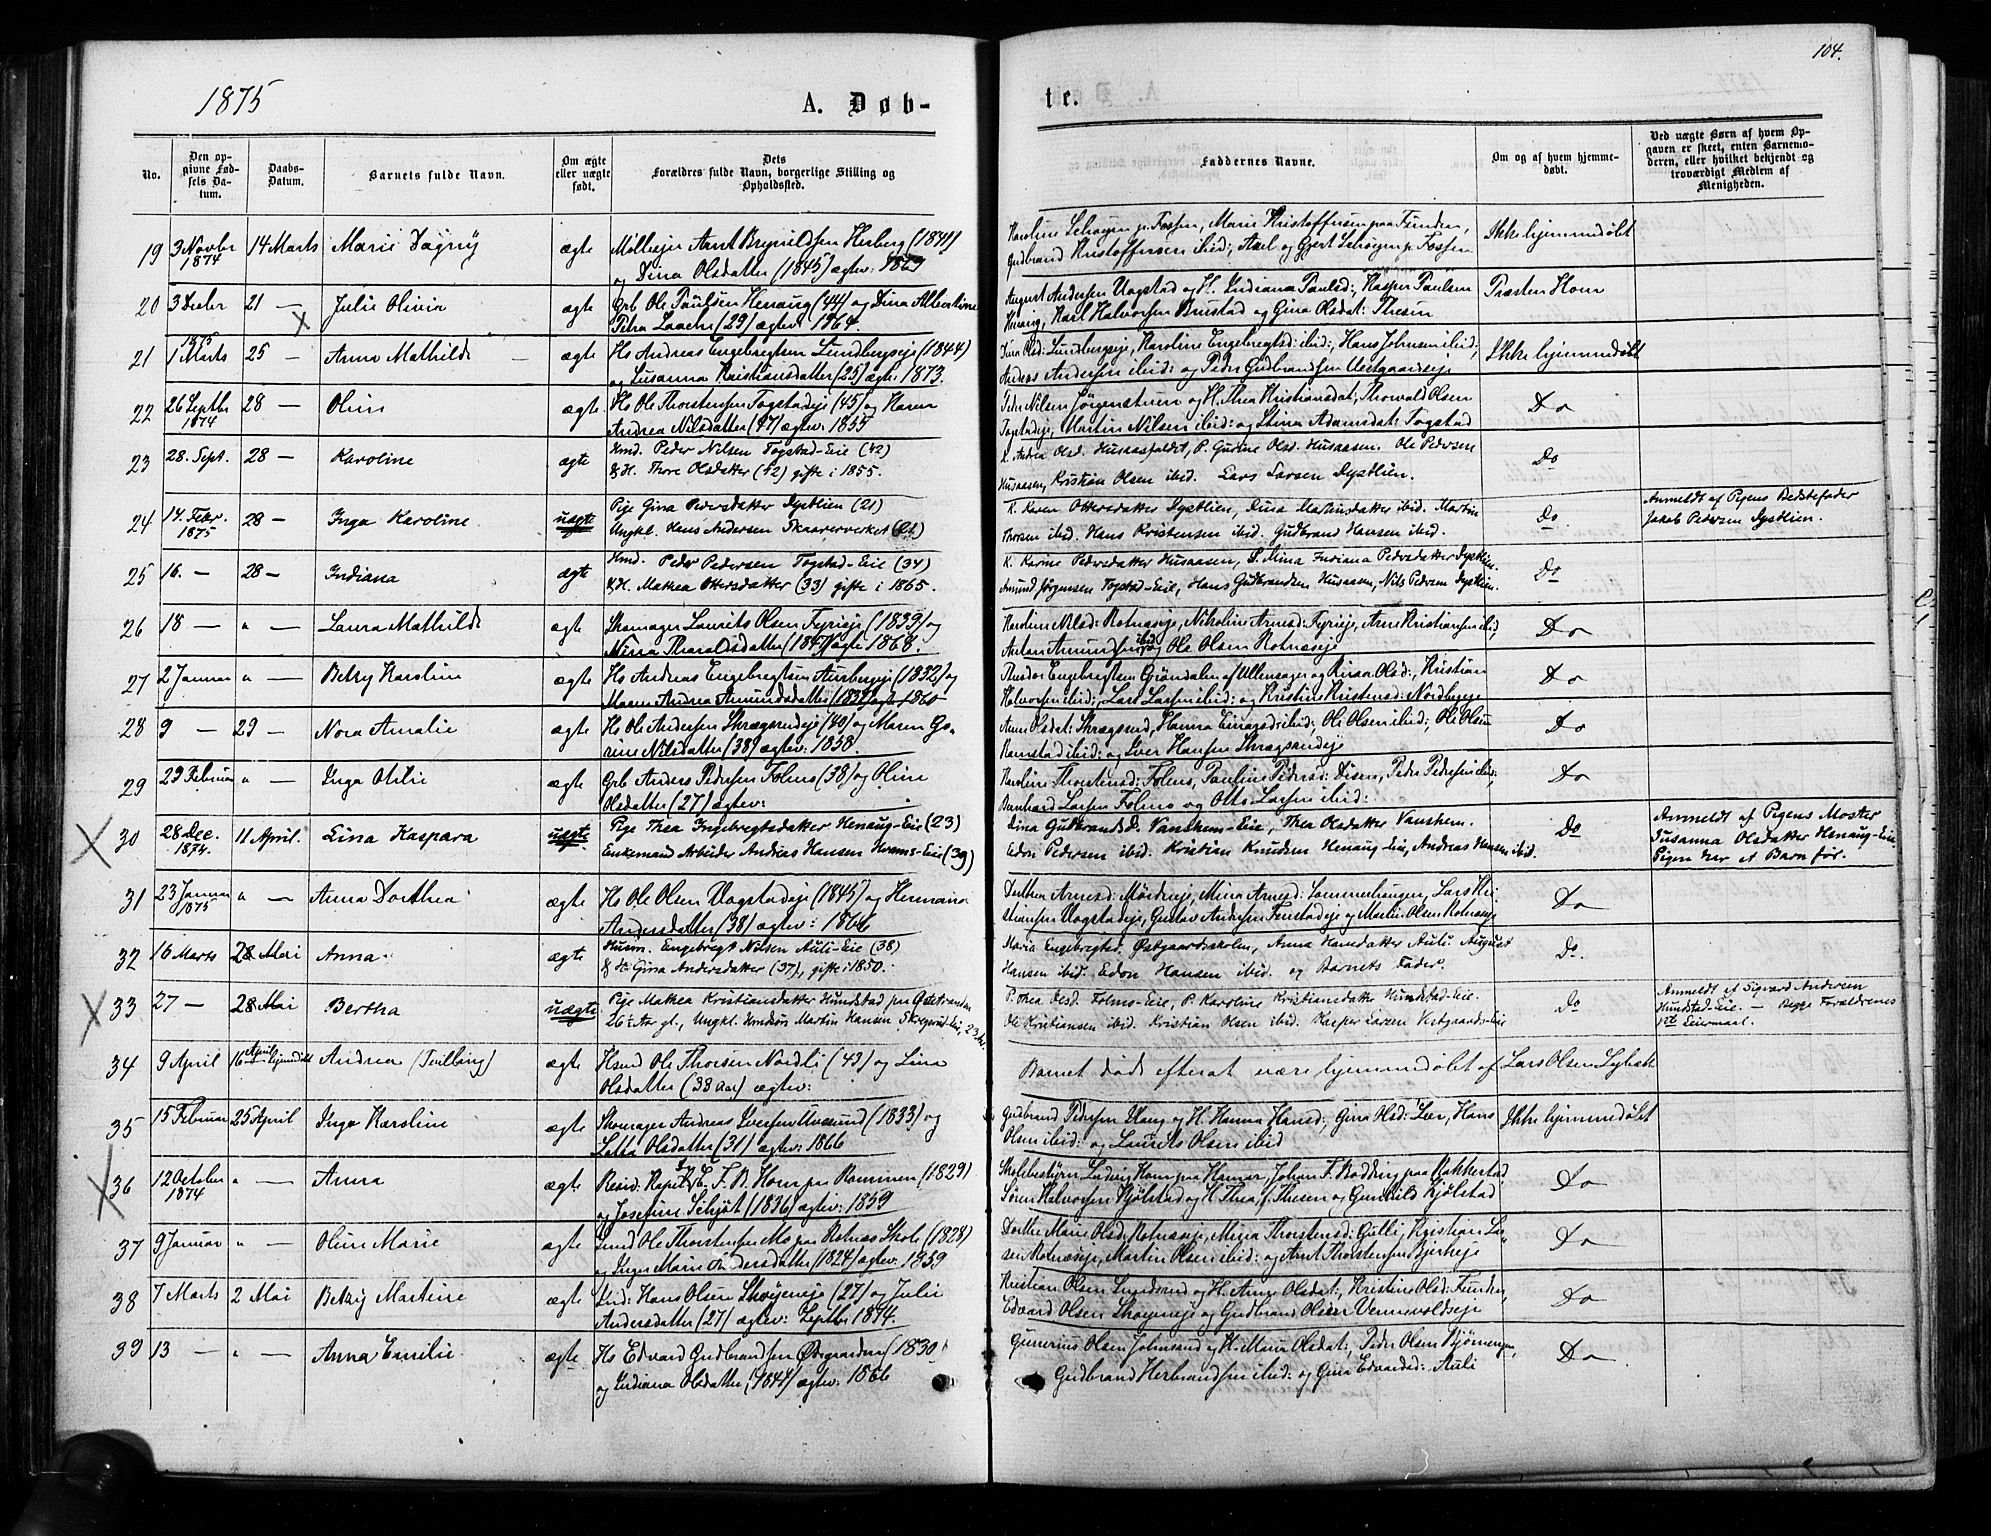 104.
1875
A. Døb-
te.
No.
Den op-
givne Fød-
sels Da-
tum.
Daabs-
Datum.
Barnets fulde Navn.
Om ægte
eller uægte
født.
Dets
Forældres fulde Navn, borgerlige Stilling og
Opholdssted.
Faddernes Navne.
Om og af hvem hjemme-
døbt.
Ved uægte Børn af hvem Op-
gaven er skeet, enten Barnemo-
deren, eller hvilket bekjendt og
troværdigt Medlem af
Menigheden.
19 3 Novbr 1874 14 Marts Marie Dagny ægte Arnt Brynildsen Herberg (1841)
og Dina Olsdatter (1845) ægtev: 1869
Marie Kristoffersen paa Funden,
Gudbrand Kristoffersen ibid:, Axel og Gjert Schøyen p. Fossen
Ikke hjemmedøbt
20 3 Decbr 21 — Julie Olivia ægte Grb Ole Paulsen Henaug (44) og Dina Albertine
Petra Laache (29) ægtev: 1864.
August Andersen Vagstad og H. Indiana Paulsd:, Kasper Paulsen
Henaug, Karl Halvorsen Brustad og Gina Olsdat: Thesen
Præsten Horn
21 1875 1 Marts 25 — Anna Mathilde — ægte Hs Andreas Engebregtsen Lundbergseje (1844)
og Susanna Kristiansdatter (25) ægt: 1873.
Karoline Engebregtsd: ibid:, Hans Johnsen ibid:,
Anders Andersen ibid: og Peder Gudbrandsen Vestgaardseje
Ikke hjemmedøbt
22 26 Septbr 1874 28 — Oline ægte Hs Ole Thorstensen Togstadeje (45) og Karen
Andrea Nilsdatter (47) ægtev: 1855
Peder Nilsen og H. Thea Kristiansdat:, Thorvald Olsen
Togstadeje, Martin Nilsen ibid: og Stina Adamsdat: Togstad
Do
23 28. Sept. 28 — Karoline ægte Hmd. Peder Nilsen Togstad-Eie (42)
& H. Thore Olsdatter (42) gifte i 1855.
K. Andrea Olsd. Husaasfaldet, P. Gurine Olsd. Husaasen. Ole Pedersen
Husaasen, Kristian Olsen ibid. Lars Larsen Dystlien.
Do
24 14. Febr. 1875 28 — Inga Karoline. uægte Pige Gina Pedersdatter Dystlien (21)
Ungkl. Hans Andersen Skaarerverket
K. Karen Ottersdatter Dystlien, ibid. Martin
Thorsen ibid. Hans Kristensen ibid. Gudbrand Hansen ibid.
Do. Anmeldt af Pigens Bedstefader
Jakob Pedersen Dystlien.
25 16. — 28 — Indiana ægte Hmd. Peder Pedersen Togstad-Eie (34)
& H. Mathea Ottersdatter (33) gifte i 1865.
K. Karine Pedersdatter Husaasen, P. Mina Indiana Pedersdatter Dystlien.
Amund Jørgensen Togstad-Eie, Hans Gudbrandsen Husaasen, Nils Pedersen Dystlien.
Do
26 18 — " — Laura Mathilde ægte Skomager Laurits Olsen Fyrieje (1839) og
Mina Tharaldsdatter (1847) ægte 1868.
Karoline Nilsd: Rotnæseje, Nikoline Arnesd: Fyrieje, Arne Kristiansen ibid:,
Anton Amundsen ibid: og Ole Olsen Rotnæseje
Do
27 2 Januar " — Betzy Karoline ægte Hs Andreas Engebregtsen Aurbergeje (1832) og
Maren Andrea Amundsdatter (1832) ægtev: 1860
Theodor Engebregtsen Grøndalen af Ullensager og Rina Olsd:, Kristian
Halvorsen ibid:, Lars Larsen ibid: og Kristine Kristensd: Nordbyeje
Do
28 9 — 29 — Nora Amalie ægte Hs Ole Andersen Skragsrudeje (40) og Maren Go-
rine Nilsdatter (38) ægtev: 1858.
Anne Olsdat: Skragsrud, Hanna ibid:, Ole Olsen ibid:, Ole Olsen
Ramstad ibid: og Iver Hansen Skragsrudeje
Do
29 23 Februar " — Inga Otilie ægte Grb Anders Pedersen Folmo (38) og Oline
Olsdatter (27) ægtev:
Karoline Thorstensd: Folmo, Pauline Pedersd: Disen, Peder Pedersen ibid:
Bernhard Larsen Folmo og Otto Larsen ibid:
Do
30 28 Dec. 1874. 11 April. Lina Kaspara uægte Pige Thea Ingebregtsdatter Henaug-Eie (23)
Enkemand Arbeider Andreas Hansen Horems-Eie (39)
Lina Gudbrandsd. Vanshem-Eie, Thea Olsdatter Vanshem.
Edon Pedersen ibid. Kristian Knudsen Henaug-Eie, Andreas Hansen ibid.
Do Anmeldt af Pigens Moster
Susanna Olsdatter Henaug-Eie
Pigen har et Barn før.
31 23 Januar 1875 " — Anna Dorthea ægte Hs Ole Olsen Vagstadeje (1845) og Hermana
Andersdatter (38) ægtev: 1866
Dorthea Arnesd: Mina Arnesd: Sommerhaugen, Lars Kri-
stiansen Vagstadeje, Gustav Andersen Fenstadeje og Martin Olsen Rotnæseje
Do
32 16 Marts 28 Mai Anna. ægte Husm. Engebregt Nilsen Auli-Eie (38)
& H. Gina Andersdatter (37), gifte i 1850.
Maria Engebregtsd. Østgaardsskolen, Anna Hansdatter Auli. August
Hansen ibid. Edon Hansen ibid. og Barnets Fader.
Do.
33 27 — 28 Mai Bertha uægte Pige Mathea Kristiansdatter Hundstad paa Øststranden
26 Aar gl., Ungkl. Husmdsøn Martin Hansen
P. Thea Olsd. Folmo-Eie, P. Karoline Kristiansdatter Hundstad-Eie.
Ole Kristiansen ibid. Kristian Olsen ibid. Kasper Larsen Vestgaards-Eie
Do Anmeldt af Sigvard Andersen
Hundstad-Eie. — Begge Forældrenes
1ste Leiermaal.
34 9 April 16 April hjemmedøbt Andrea (Tvilling) ægte Hsmd Ole Thorsen Nordli (43) og Lina
Olsdatter (38 aar) ægtev:
Barnet døde efterat være hjemmedøbt af Lars Olsen Lybæk
35 15 Februar 25 April Inga Karoline ægte Skomager Andreas Iversen (1833) og
Lotta Olsdatter (31) ægtev: 1866
Gudbrand Pedersen Vaag og H. Hanna Hansd:, Gina Olsd: Lier, Hans
Olsen ibid: og Laurits Olsen ibid
Ikke hjemmedøbt
36 12 October 1874 " — Anna ægte Resid. Kapel. F. B. Horn paa Rommen (1829)
og Josefine Schjøt (1836) ægtev: 1859
Skolebestyrer Ludvig Horn paa Hamar, Johan F. Rodding paa Rakkestad
Søren Halvorsen Kjølstad og H. Thea, f. Thesen og Gunhild Kjølstad
Do
37 9 Januar " — Oline Marie ægte Ole Thorstensen Mo paa Rotnæs Skole (1828)
og Inger Marie Andersdatter (1824) ægtev: 1859
Dorthe Marie Olsd: Rotnæseje, Mina Thorstensd: Gulli, Kristian Lar-
sen Rotnæseje, Martin Olsen ibid: og Arnt Thorstensen Bjerkeeje
Do
38 7 Marts 2 Mai Betzy Martine ægte Hans Olsen Skøyeneje (27) og Julie
Andersdatter (27) ægtev: Septbr 1874.
Kristian Olsen og H. Anne Olsdat:, Kristine Olsd: Funden,
Edvard Olsen Skøyeneje og Gudbrand Olsen Vennevoldseje
Do
39 13 — " — Anna Emilie ægte Hs Edvard Gudbrandsen Østgaarden (1830)
og Indiana Olsdatter (1844) ægtev: 1866
Gunerius Olsen Johnsrud og H. Marie Olsdat:, Peder Olsen Bjømengen,
Gudbrand Herbrandsen ibid: og Gina Edvardsd: Auli
Do